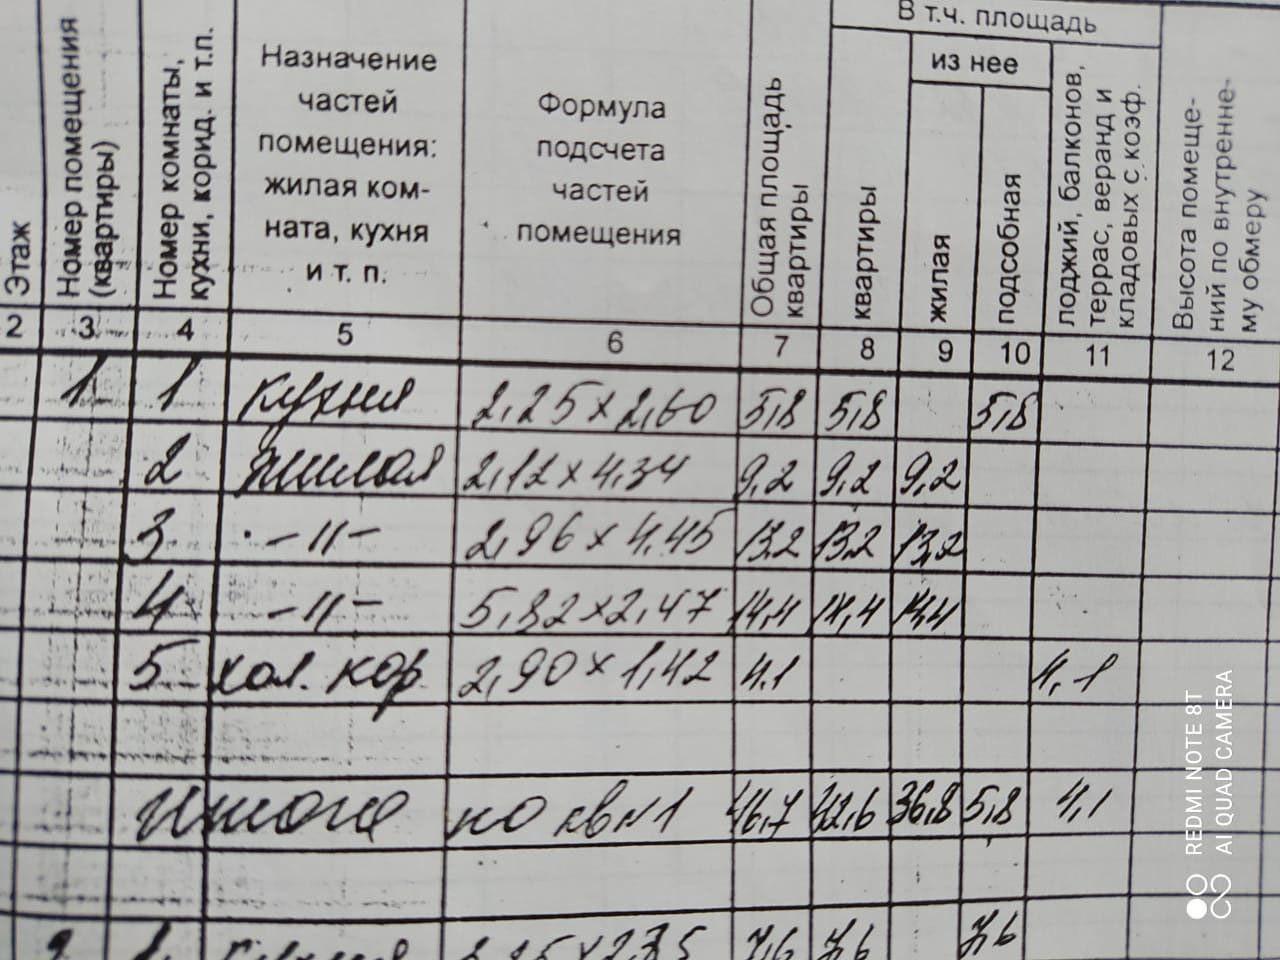 В т.ч. площадь
из нее
Этаж
Номер помещения (квартиры)
Номер комнаты, кухни, корид. и т.п.
Назначение
частей
помещения:
жилая ком-
ната, кухня
и т. п.
Формула
подсчета
частей
помещения
Общая площадь квартиры
квартиры
жилая
подсобная
лоджий, балконов, террас, веранд и кладовых с коэф.
Высота помеще-
ний по внутренне-
му обмеру
2 3 4 5 6 7 8 9 10 11 12
1 1 кухня 2,25 x 2,60 5,8 5,8 5,8
2 жилая 2,12 x 4,34 9,2 9,2 9,2
3 -"- 2,96 x 4.45 13,2 13,2 13,2
4 -"- 5,82 x 2,47 14,4 14,4 14,4
5 хол. кор. 2,90 x 1,42 4.1 4,1
Итого по кв№1 46,7 42,6 36,8 5,8 4,1
2 1 кухня 7,6 7,6 7,6
REDMI NOTE 8T
AI QUAD CAMERA